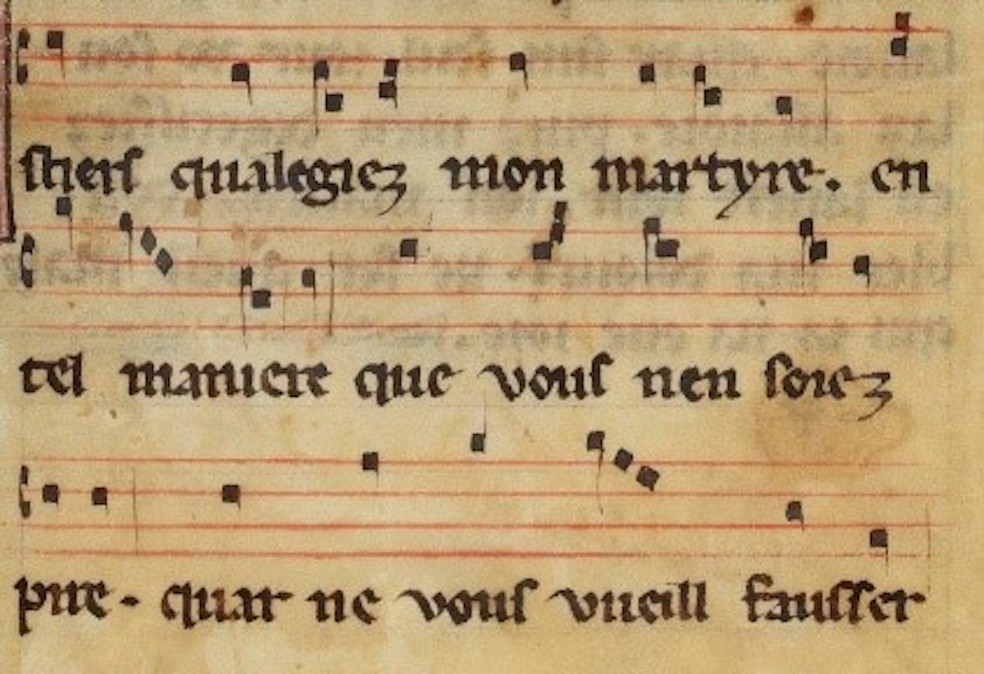 chiers qualegiez mon martyre. en
tel maniere que vous nen soiez
pire. quar ne vous vueill fausser